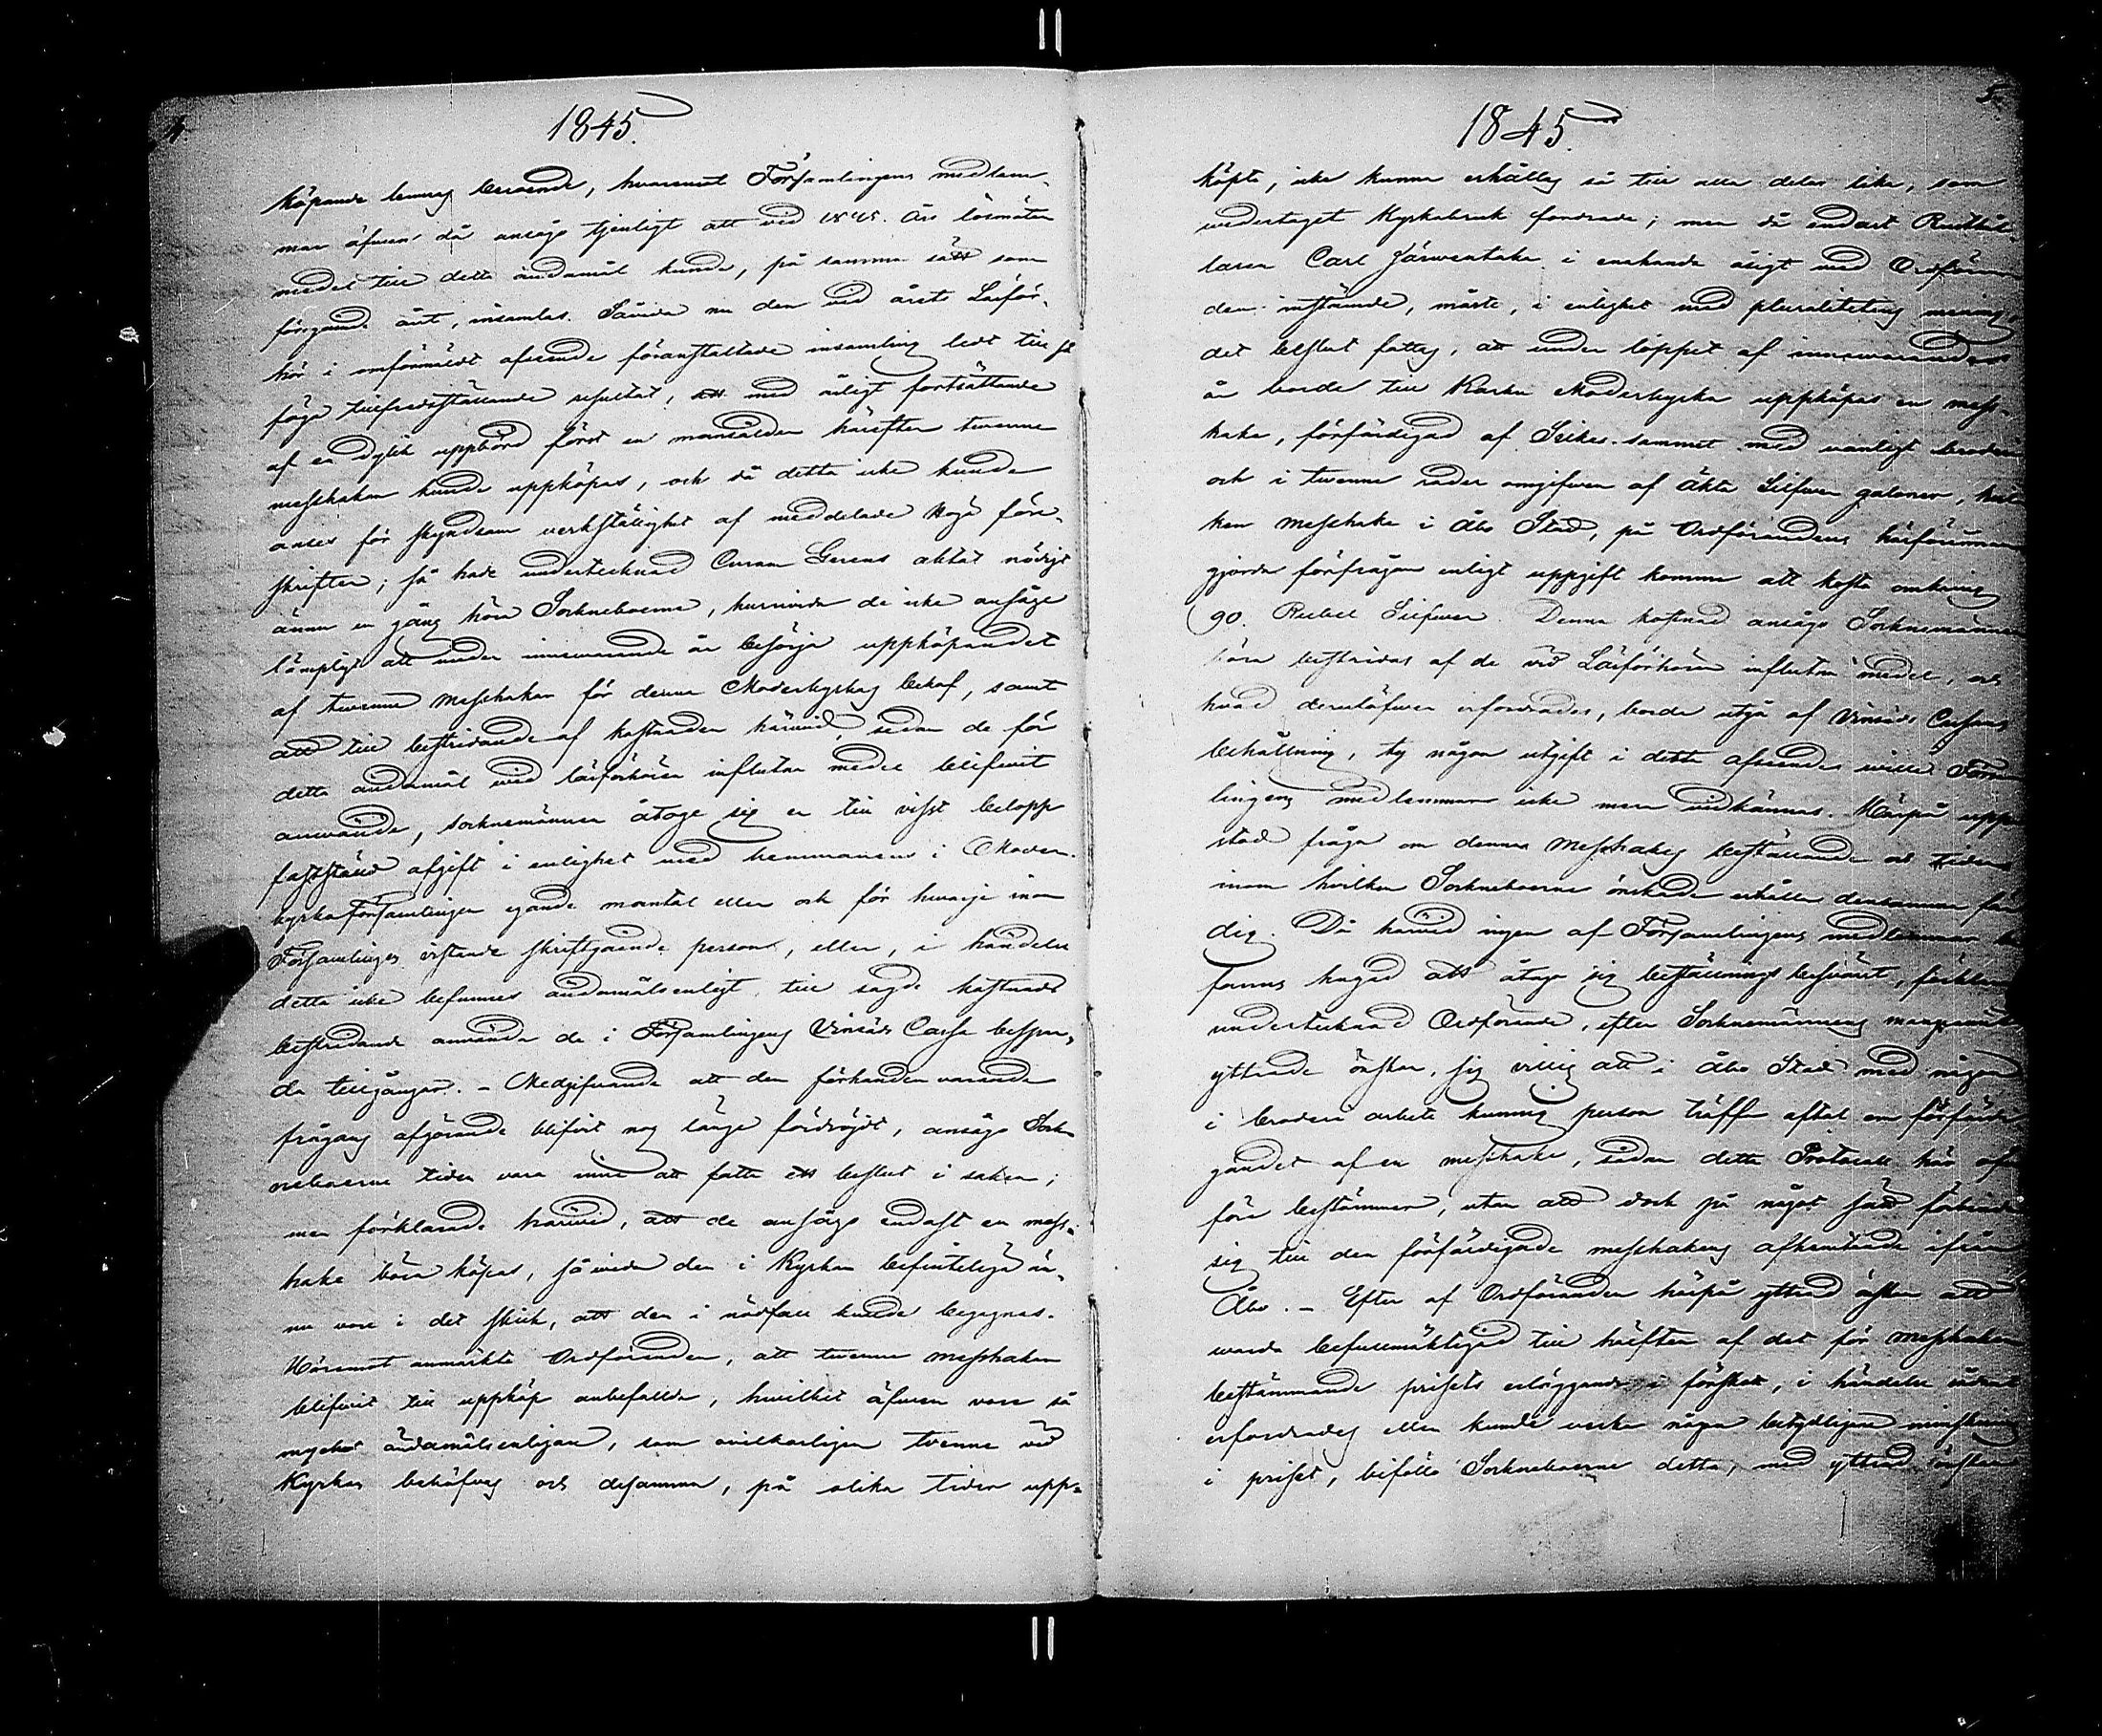 4.
1845.
köpande lemnas beroende, hvaremot Församlingens medlem-
mar äfven då ansågo tjenligt att vid 1845. Års läsmöten
medel till detta ändamål kunde, på samma sätt som
föregående året, insamlas. Såvida nu den vid årets Läsför-
hör i omförmäldt afseende föranstaltade insamling ledt till så
föga tillfredsställande resultat, att med årligt fortsättande
af en dylik uppbörd först en mansålder härefter tvenne
messhakar kunde uppköpas, och då detta icke kunde
anses för skyndsam verkställighet af meddelade höga före-
skrifter; så hade undertecknad Curam Gerens aktat nödigt
ännu en gång höra Sockneboerne, huruvida de icke ansågo
lämpligt att under innevarande år besörja uppköpandet
af tvenne messhakar för denna Moderkyrkas behof, samt
att till bestridande af kostnaden härvid, sedan de för
detta ändamål vid läsförhören influtna medel blifvit
använde, socknemännen åtoge sig en till visst belopp
fastställd afgift i enlighet med hemmanens i Moder-
kyrkoförsamlingen egande mantal eller och för hvarje inom
Församlingen varande skriftgående person, eller, i händelse
detta icke befunnes ändamålsenligt, till sagde kostnads
bestridande använda de i Församlingens Vinsäds Cassa bespar-
da tillgångar. – Medgifvande att den förhandenvarande
frågans afgörande blifvit nog länge fördröjdt, ansågo Sock-
neboerne tiden vara inne att fatta ett beslut i saken;
men förklarade härvid, att de ansågo endast en mess-
hake böra köpas, så vida den i Kyrkan befintelige än-
nu vore i det skick, att den i nödfall kunde begagnas.
Häremot anmärkte Ordföranden, att tvenne messhakar
blifvit till uppköp anbefallde, hvilket äfven vore så
mycket ändamålsenligare, som ovilkorligen tvenne vid
Kyrkan behöfves och desamma, på olika tider upp-
5.
1845.
köpte, icke kunna erhållas så till alla delar lika, som
vedertaget Kyrkobruk fordrade; men då endast Rusthål-
laren Carl Järwentaka i enahanda åsigt med Ordföran
den instämde, måste, i enlighet med pluralitetens mening,
det beslut fattas, att under loppet af innevarande
år borde till Karku Moderkyrka uppköpas en mess-
hake, förfärdigad af Silkes-sammet med vanligt broderi
och i tvenne rader omgifven af äkta Silfver galoner, hvil
ken messhake i Åbo Stad, på Ordförandens härförinnan
gjorda förfrågan enligt uppgift komme att kosta omkring
90. Rubel Silfver. Denna kostnad ansågo Socknemännen
böra bestridas af de vid Läsförhören influtna medel, och
hvad derutöfver erfordrades, borde utgå af Vinsäds Cassans
behållning, ty någon utgift i detta afseende ville Försam
lingens medlemmar icke mera vidkännas. Härpå upp-
stod fråga om denna messhakes beställande och tiden
inom hvilken Sockneboerne önskade erhålla densamma fär
dig. Då härvid ingen af Församlingens medlemmar be
fanns hugad att åtaga sig beställnings besväret, förklarade
undertecknad Ordförande, efter Socknemännens mangrannt
yttrade önskan, sig villig att i Åbo Stad med någon
i broderi arbete kunnig person träffa aftal om förfärdi
gandet af en messhake, sådan detta Protocoll här ofvan
före bestämmer, utan att dock på något sätt förbinda
sig till den förfärdigade messhakens afhemtande ifrån
Åbo. – Efter af Ordföranden härpå yttrad önskan att
varda befullmäktigad till hälften af det för messhaken
bestämmande prisets erläggande i förskott, i händelse sådant
erfordrades eller kunde verka någon betydligare minskning
i priset, biföllo Sockneboerne detta, med yttrad önskan